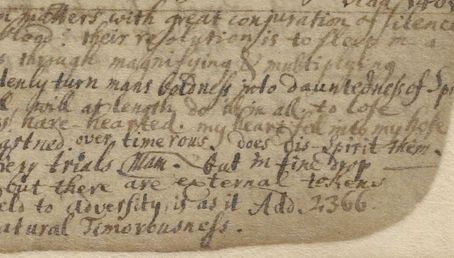 matters with great conjuration of silence
blood: their resolution is to sleep in a
through magnifying & multiplying
turn mans boldness into dauntedness of
will at length do in all to lose
have hearted. my heart fell into my hose
over timerous. Does dis-spirit them.
trials Man. But in fine drop
but there are external tokens
to adversity is as it Add. 2366.
atural Timorousness.